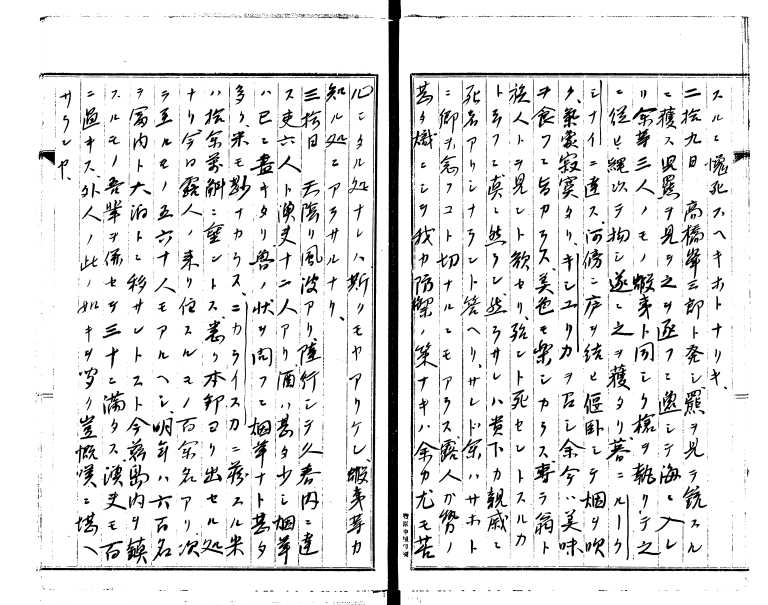 スルニ愧死スヘキホトナリキ、
二拾九日 高橋峯三郎ト発シ羆ヲ見テ銃スル
ニ獲ス又羆ヲ見之ヲ逐フニ遁シテ海ニ入レ
リ余等三人ノモノ蝦夷ト同シク槍ヲ執リテ之
ニ従ヒ縄以テ拘シ遂ニ之ヲ獲タリ暮ニルーク
シナイニ達ス河傍ニ庐ヲ結ヒ偃臥シテ烟ヲ吹
ク、氣宴寂寞タリ、キンユリカヲ召シ余今ハ美味
ヲ食フニ旨カラス美色モ楽シカラス専ラ翁ト
族人トヲ見ント欲セリ、殆ント死セントスルカ
トヲフニ真ニ然ラン然ラサレハ貴下カ親戚ニ
死者アリシナラント答ヘリ、サレト余ハサホト
ニ郷ヲ念フコト切ナルニモアラス露人カ勢ノ
甚タ熾ニシテ我カ防禦ノ策ナキハ余カ尤モ苦
心シタル処ナレハ斯クモヤアリケン、蝦夷等カ
知ル処ニアラサルナリ、
三拾日 天陰リ風波アリ陸行シテ久春内ニ達
ス吏六人ト漁夫十二人アリ酒ハ甚タ少シ烟草
ハ已ニ盡キタリ魯ノ状ヲ問フニ烟草ナト甚タ
多ク米モ尠ナカラス、ニカライスカニ蔵スル米
ハ拾余萬斛ニ垂ントス悉ク本邦ヨリ出セル処
ナリ今日露人ノ来リ住スルモノ百余名アリ次
ラ至ルモノ五六十人モアルヘシ、明年ハ六百名
ヲ富内ト大泊トニ移サントスト今茲島内ヲ鎮
スルモノ吾輩ヲ係セテ三十ニ満タス漁夫モ百
ニ過キス外人ノ此ノ如キヲ聞ク豈慨嘆ニ堪ヘ
サランヤ、